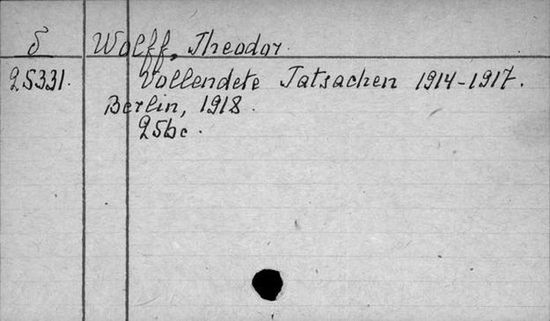 δ Wolff, Theodor.
25331. Vollendete Tatsachen 1914-1917.
Berlin, 1918.
25bc.